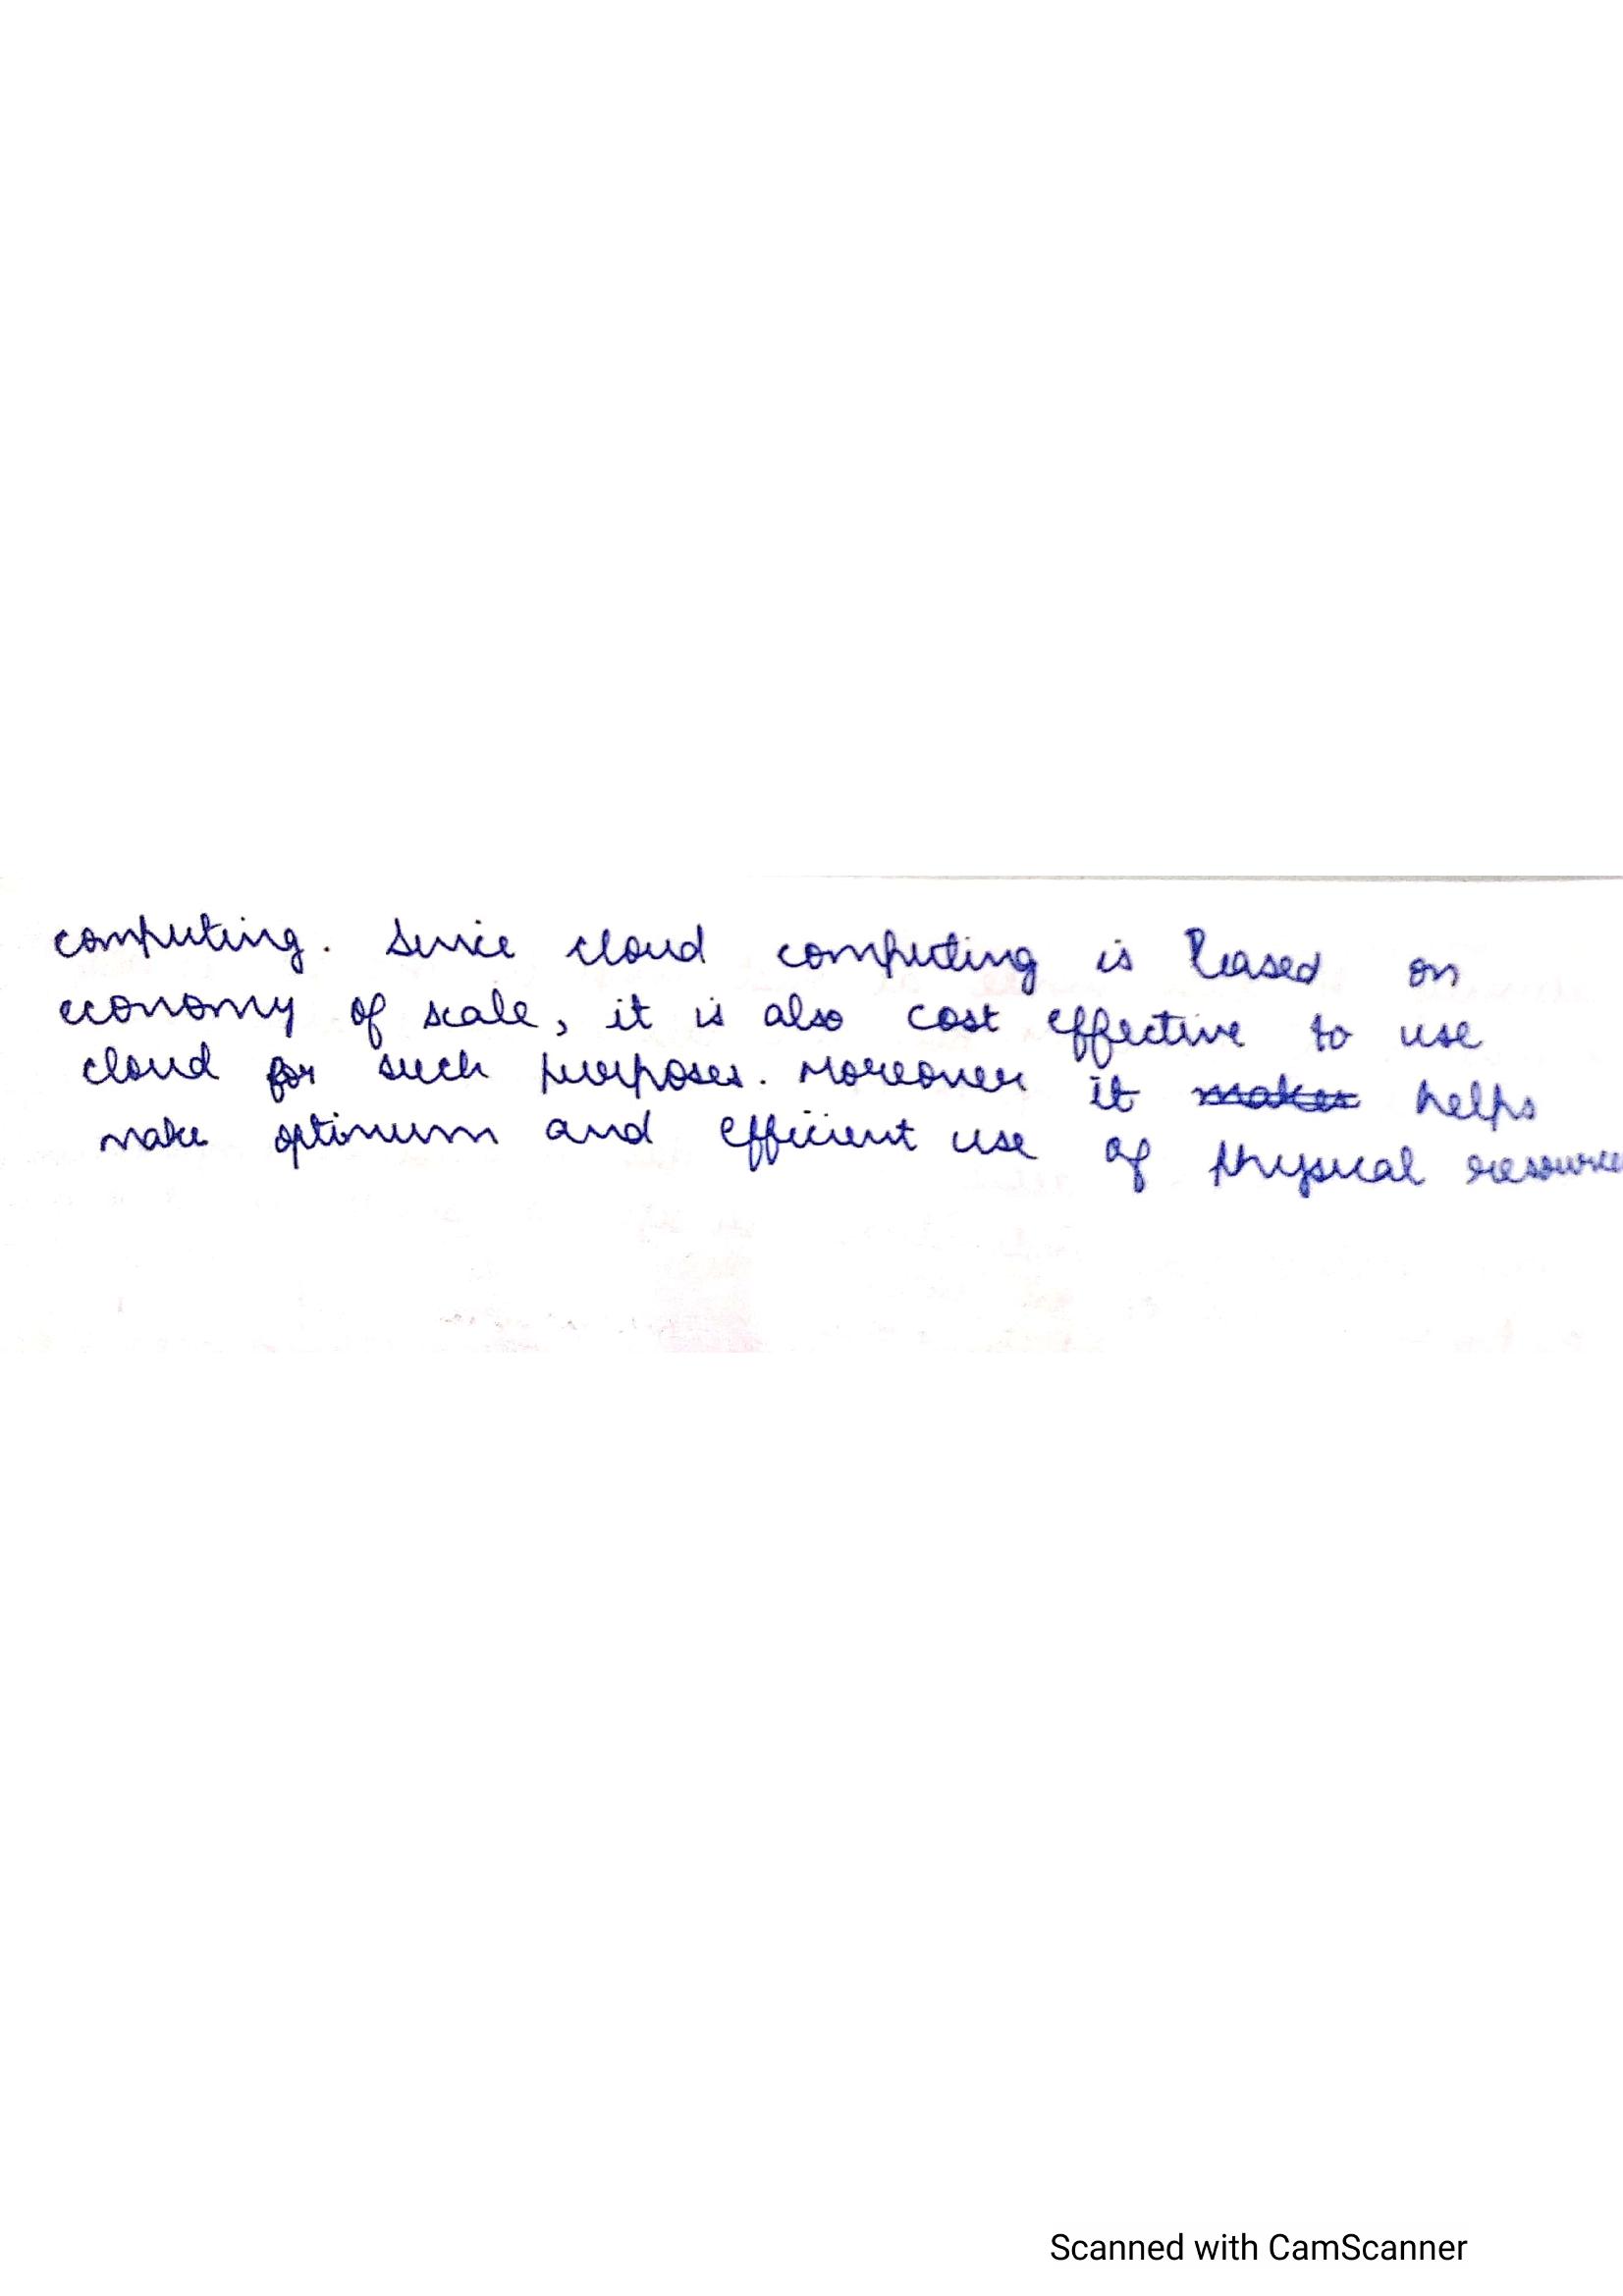 computing. Since cloud computing is based on
economy of scale, it is also cost effective to use
cloud for such purposes. Moreover it ~~makes~~ helps
make optimum and efficient use of physical resource
Scanned with CamScanner